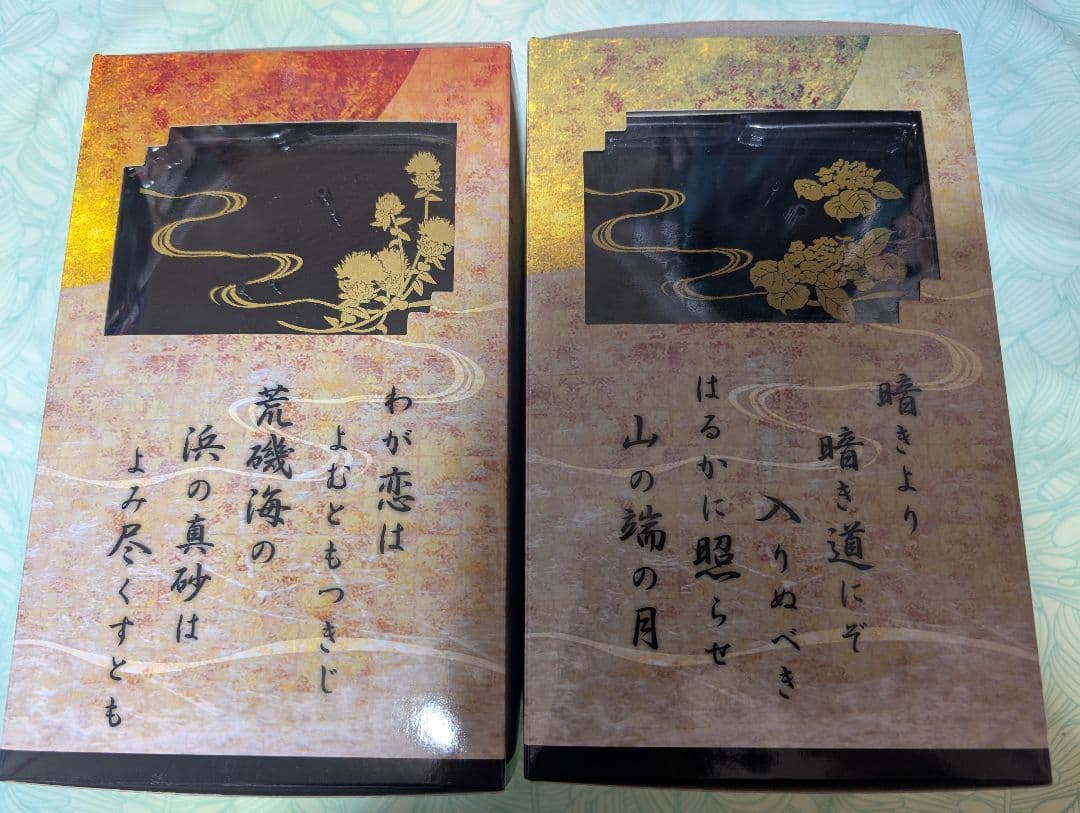 わが恋は
よむともつきじ
荒磯海の
浜の真砂は
よみ尽くすとも
暗きより
暗き道にぞ
入りぬべき
はるかに照らせ
山の端の月